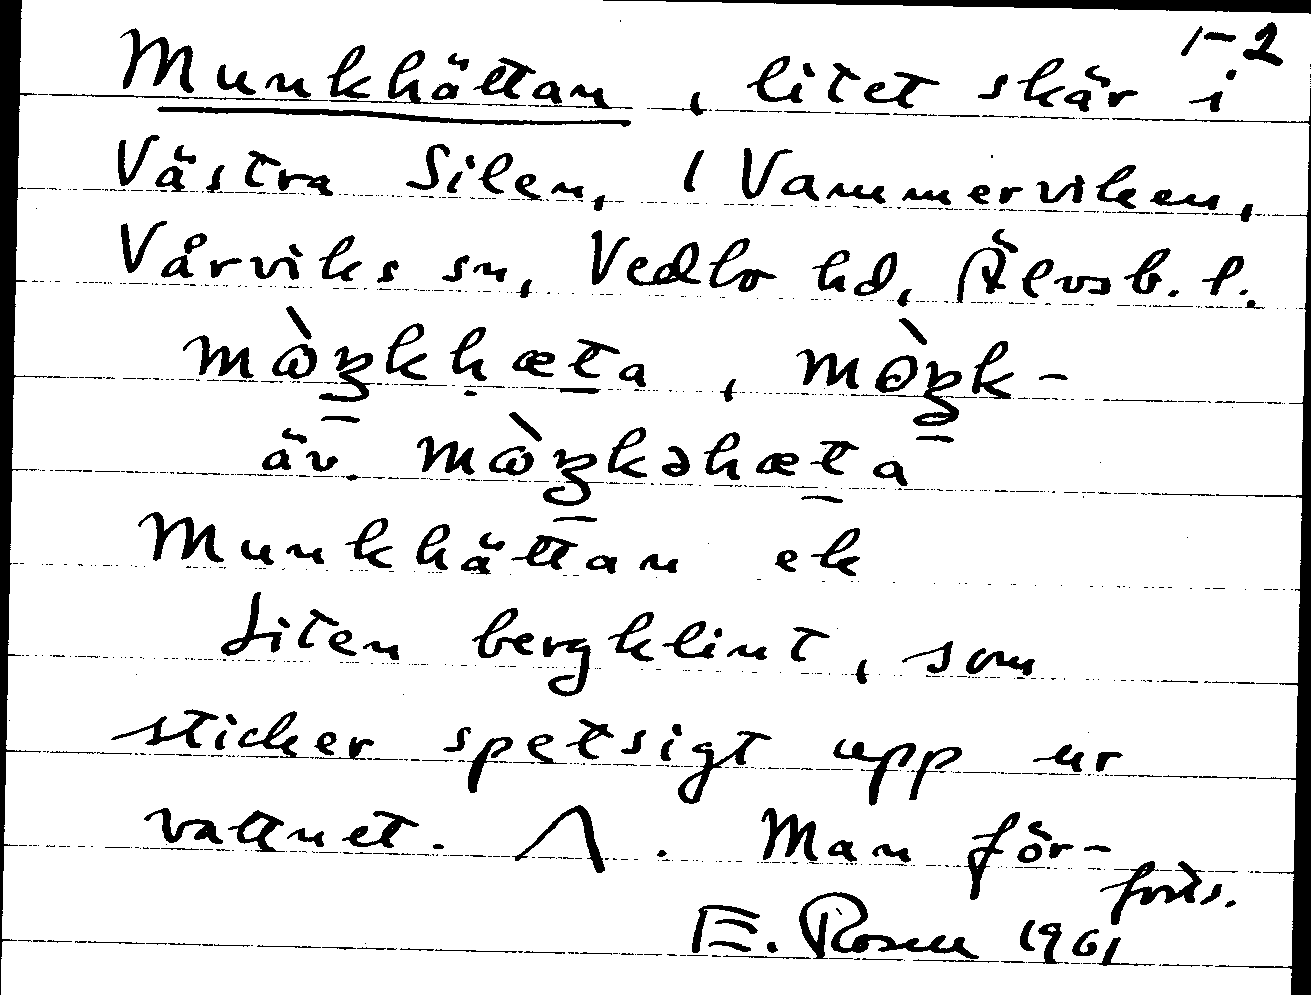 1-2
Munkhättan, litet skär i
Västra Silen, i Vammerviken,
Vårviks sn, Vedbo hd, Älvsb. l.
mòŋkhæta, mòŋk-
äv. mòŋkəhæta
Munkhättan ek
Liten bergklint, som
sticker spetsigt upp ur
vattnet. Λ. Man för-
forts.
E. Rosell 1961